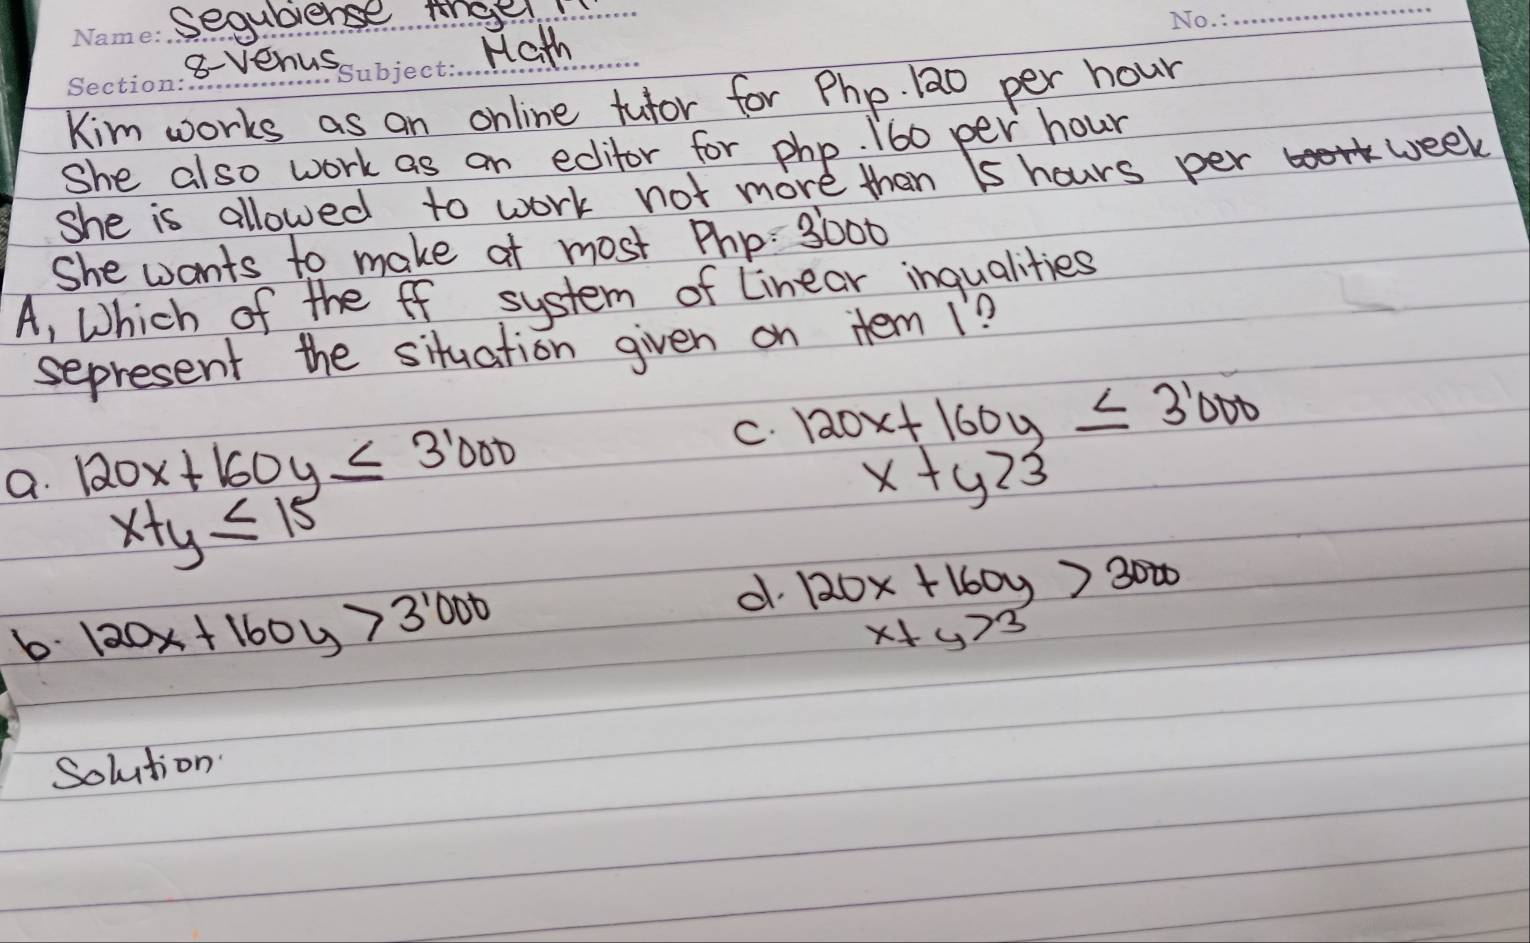 Name: Segubiense Angel
No.:
Section: 8-Venus Subject: Math
Kim works as an online tutor for Php. 120 per hour
She also work as an editor for php. 160 per hour
She is allowed to work not more than 15 hours per week
She wants to make at most Php. 3'000
A, Which of the ff system of Linear inqualities
sepresent the situation given on item 1?
a. 120x + 160y ≤ 3'000
x+y ≤ 15
c. 120x + 160y ≤ 3'000
x + y > 3
b. 120x + 160y > 3'000
d. 120x + 160y > 3000
x + y > 3
Solution: